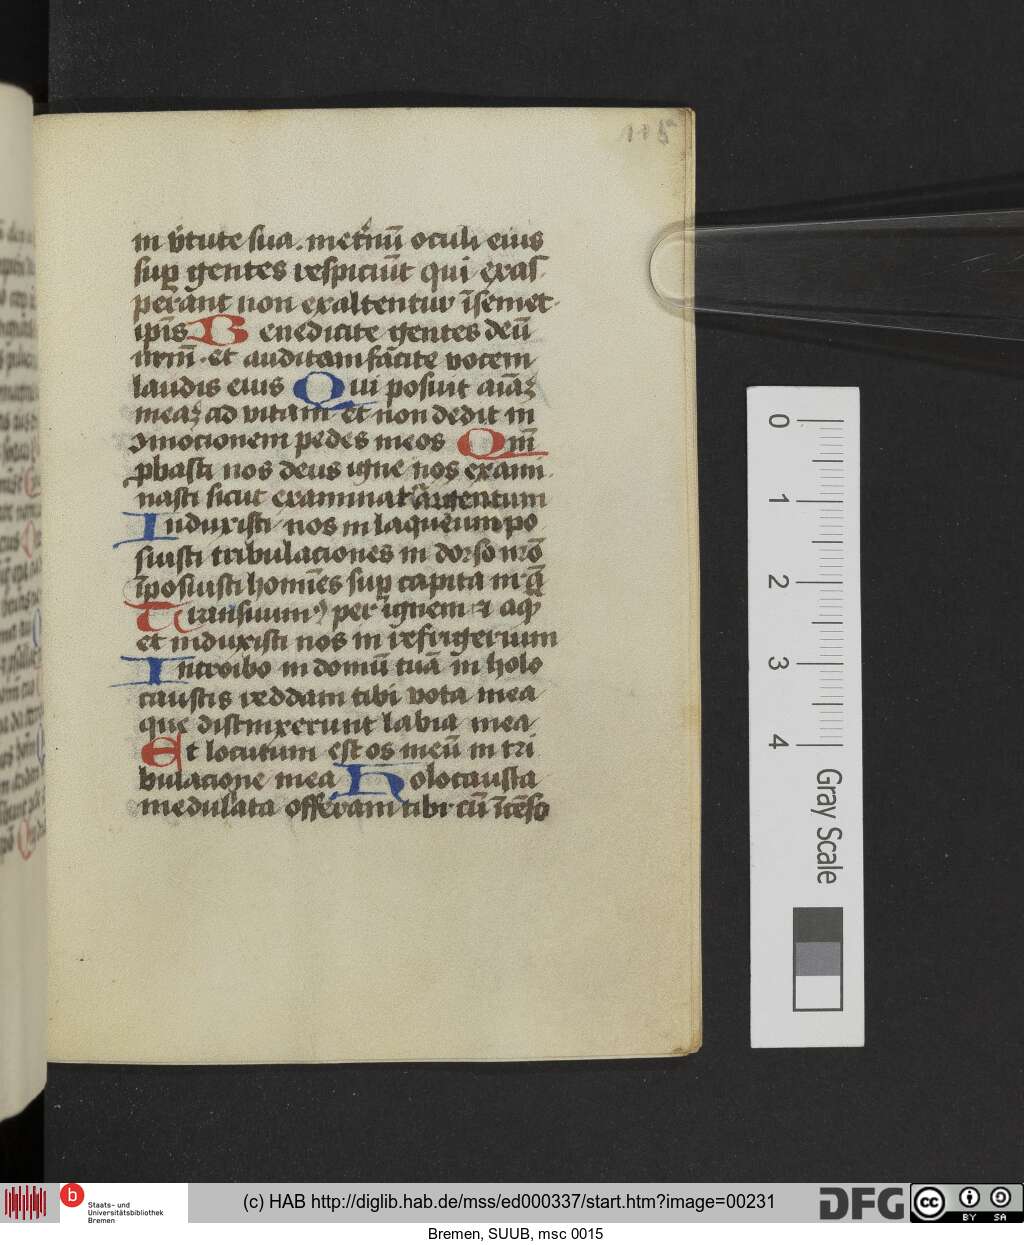 115
in v̓tute sua. in et̓nū oculi eius
sup̱ gentes respiciūt qui exas
perant non exaltentur ī semet
ip̄is Benedicite gentes deū
nr̄m et auditam facite vocem
laudis eius Qui posuit aīaꝫ
meaꝫ ad vitam et non dedit in
ꝯmocionem pedes meos Qm̄
ꝓbasti nos deus igne nos exami
nasti sicut examinat᷑ argentum
Induxisti nos in laqueum po
suisti tribulaciones in dorso nr̄o
īposuisti homīes sup̱ capita nr̄a
Transiuimꝰ per ignem ⁊ aqᷓ
et induxisti nos in refrigerium
Introibo in domū tuā in holo
caustis reddam tibi vota mea
que distinxerunt labia mea
Et locutum est os meū in tri
bulacione mea Holocausta
medullata offeram tibi cū īcēso
0
1
2
3
4
Gray Scale
b
Staats- und
Universitätsbibliothek
Bremen
(c) HAB http://diglib.hab.de/mss/ed000337/start.htm?image=00231
DFG
cc
BY SA
Bremen, SUUB, msc 0015